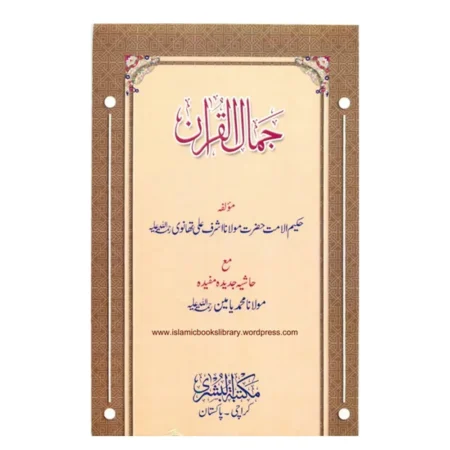 جمال القرآن
مؤلفہ
حکیم الامت حضرت مولانا اشرف علی تھانوی رحمۃ اللہ علیہ
مع
حاشیہ جدیدہ مفیدہ
مولانا محمد یامین رحمۃ اللہ علیہ
www.islamicbookslibrary.wordpress.com
مکتبۃ البشریٰ
کراچی - پاکستان